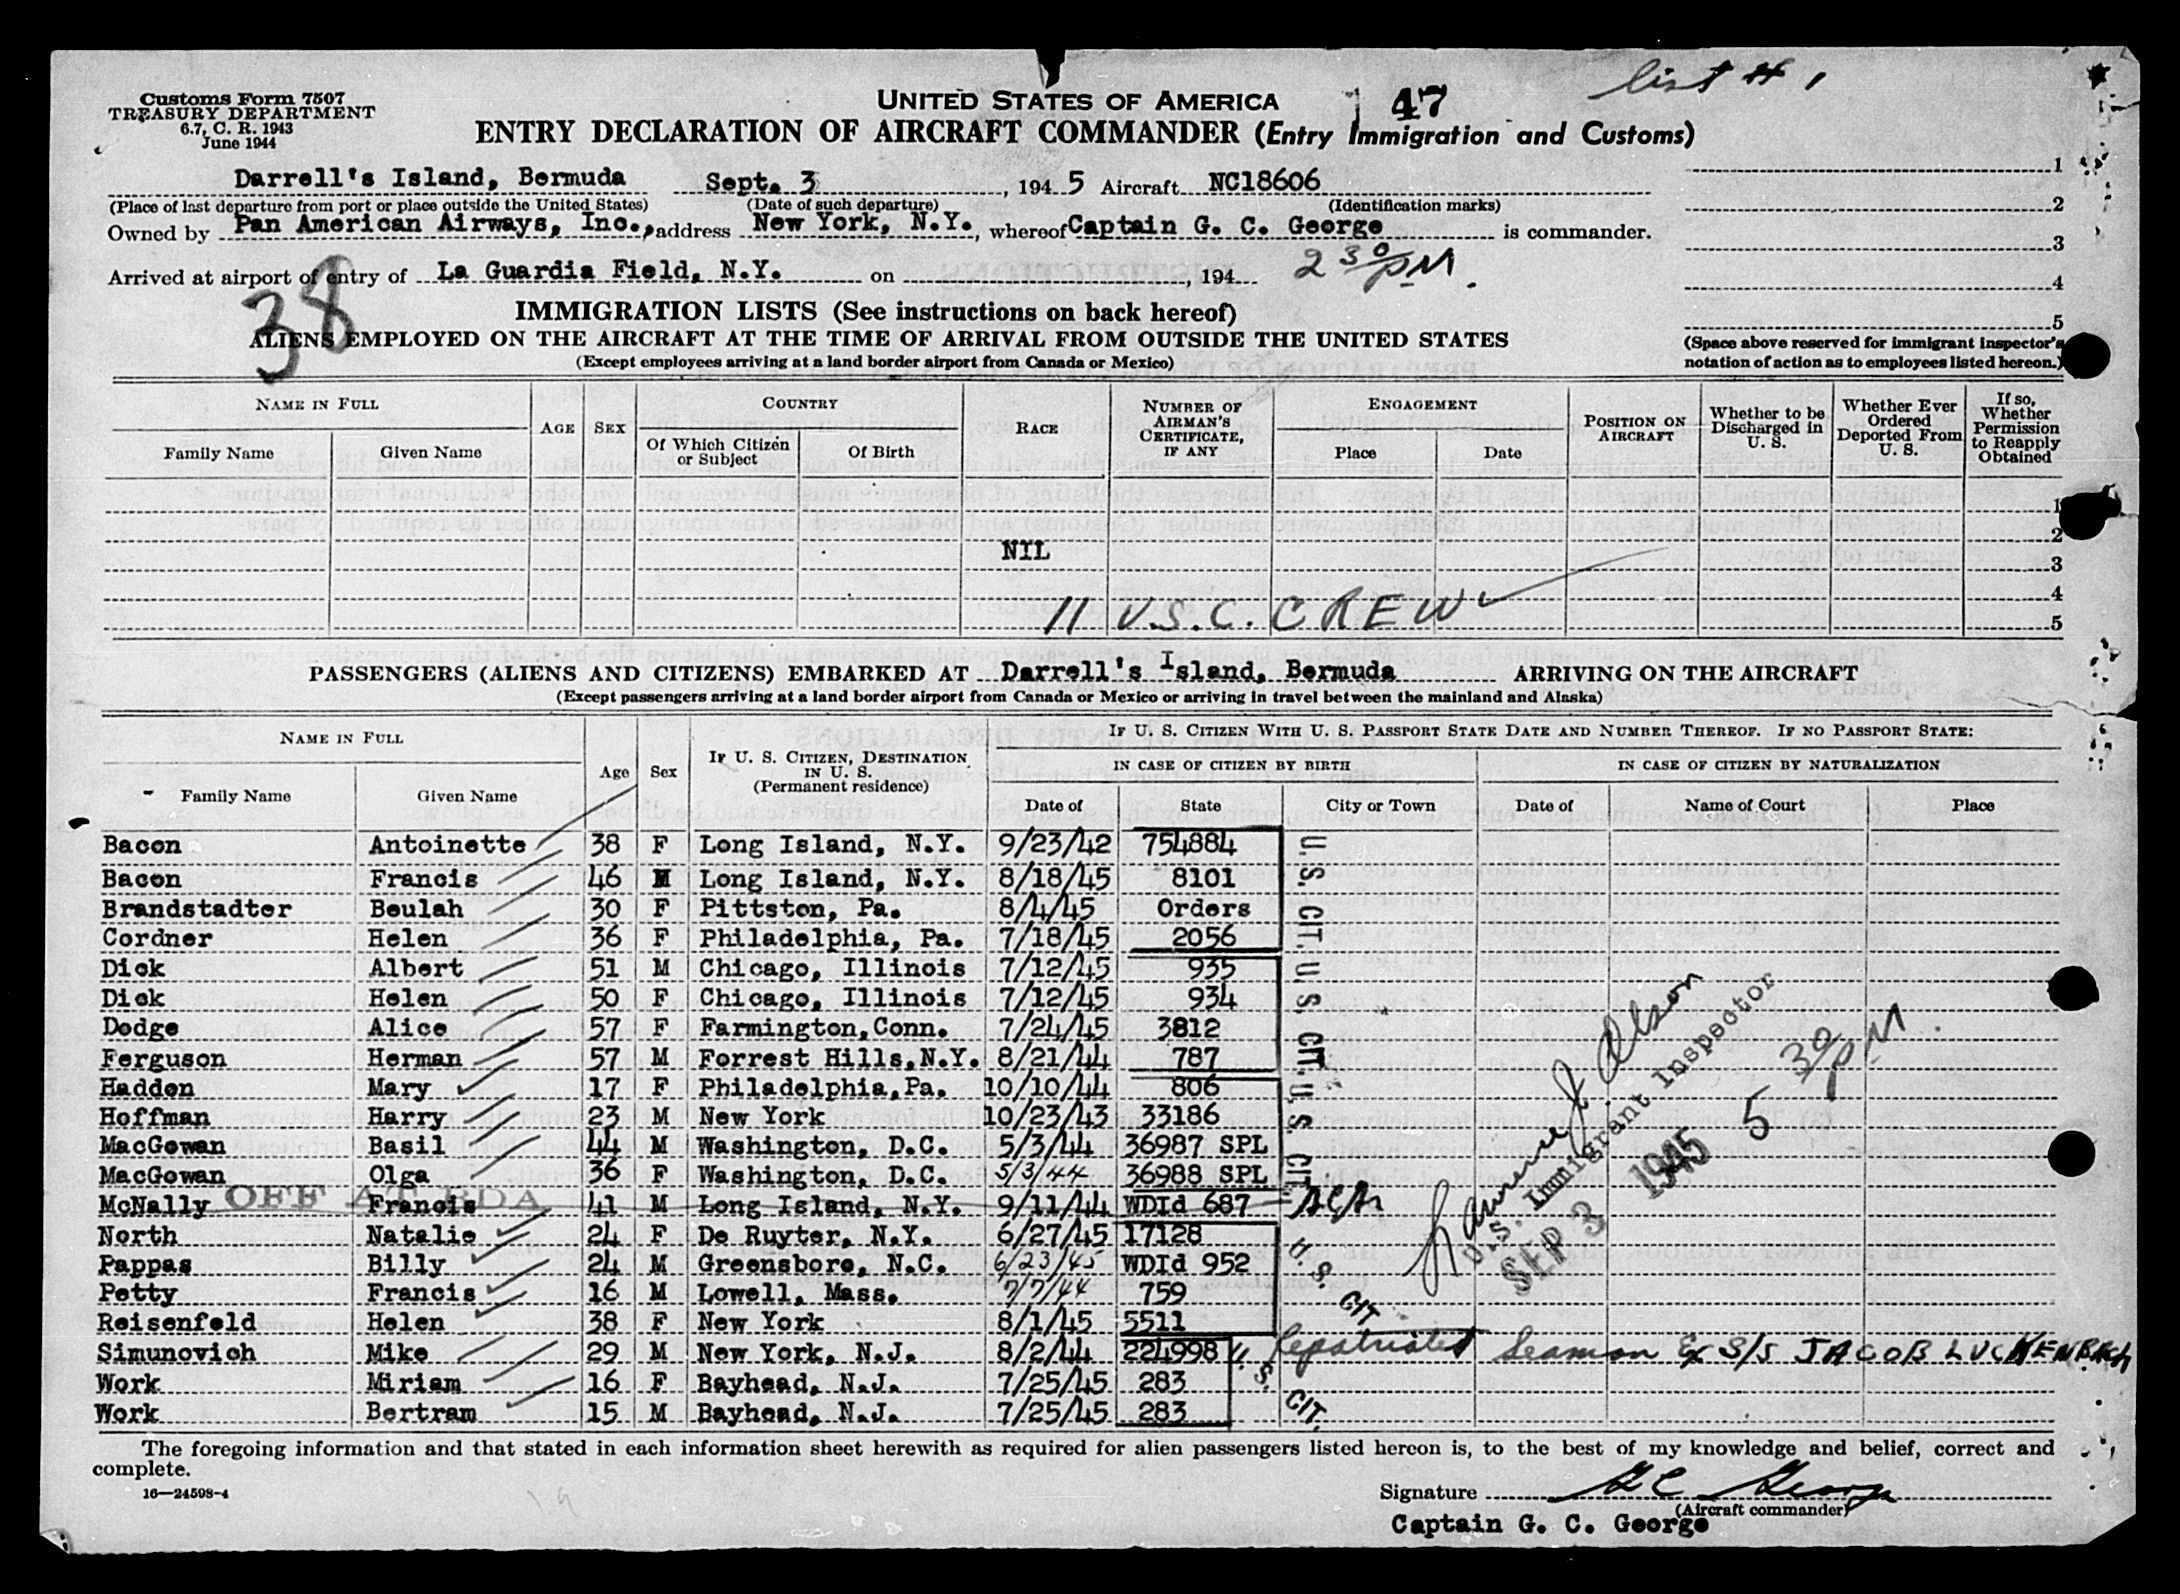 list # 1
Customs Form 7507
TREASURY DEPARTMENT
6.7, C. R. 1943
June 1944
UNITED STATES OF AMERICA
47
ENTRY DECLARATION OF AIRCRAFT COMMANDER (Entry Immigration and Customs)
Darrell's Island, Bermuda Sept. 3, 1945 Aircraft NC18606
(Place of last departure from port or place outside the United States) (Date of such departure) (Identification marks)
Owned by Pan American Airways, Inc., address New York, N.Y., whereof Captain G. C. George is commander.
Arrived at airport of entry of La Guardia Field, N.Y. on , 194 2 30 PM.
1
2
3
4
5
(Space above reserved for immigrant inspector's notation of action as to employees listed hereon.)
38
IMMIGRATION LISTS (See instructions on back hereof)
ALIENS EMPLOYED ON THE AIRCRAFT AT THE TIME OF ARRIVAL FROM OUTSIDE THE UNITED STATES
(Except employees arriving at a land border airport from Canada or Mexico)
NAME IN FULL
Family Name Given Name
AGE SEX
COUNTRY
Of Which Citizen or Subject Of Birth
RACE
NUMBER OF AIRMAN'S CERTIFICATE, IF ANY
ENGAGEMENT
Place Date
POSITION ON AIRCRAFT
Whether to be Discharged in U. S.
Whether Ever Ordered Deported From U. S.
If so, Whether Permission to Reapply Obtained
1
2
NIL
3
4
11 U.S.C. CREW
5
PASSENGERS (ALIENS AND CITIZENS) EMBARKED AT Darrell's Island, Bermuda ARRIVING ON THE AIRCRAFT
(Except passengers arriving at a land border airport from Canada or Mexico or arriving in travel between the mainland and Alaska)
NAME IN FULL
Family Name Given Name
Age Sex
IF U. S. CITIZEN, DESTINATION IN U. S. (Permanent residence)
IF U. S. CITIZEN WITH U. S. PASSPORT STATE DATE AND NUMBER THEREOF. IF NO PASSPORT STATE:
IN CASE OF CITIZEN BY BIRTH IN CASE OF CITIZEN BY NATURALIZATION
Date of State City or Town Date of Name of Court Place
Bacon Antoinette 38 F Long Island, N.Y. 9/23/42 754884
Bacon Francis 46 M Long Island, N.Y. 8/18/45 8101
Brandstadter Beulah 30 F Pittston, Pa. 8/4/45 Orders
Cordner Helen 36 F Philadelphia, Pa. 7/18/45 2056
U.S. CIT.
Dick Albert 51 M Chicago, Illinois 7/12/45 935
Dick Helen 50 F Chicago, Illinois 7/12/45 934
Dodge Alice 57 F Farmington, Conn. 7/24/45 3812
Ferguson Herman 57 M Forrest Hills, N.Y. 8/21/44 787
U. S. CIT.
Hadden Mary 17 F Philadelphia, Pa. 10/10/44 806
Hoffman Harry 23 M New York 10/23/43 33186
MacGowan Basil 44 M Washington, D.C. 5/3/44 36987 SPL
MacGowan Olga 36 F Washington, D.C. 5/3/44 36988 SPL
U. S. CIT.
McNally Francis 41 M Long Island, N.Y. 9/11/44 WDId 687
OFF AT BDA
North Natalie 24 F De Ruyter, N.Y. 6/27/45 17128
Pappas Billy 24 M Greensboro, N.C. 6/23/45 WDId 952
Petty Francis 16 M Lowell, Mass. 7/7/44 759
Reisenfeld Helen 38 F New York 8/1/45 5511
U. S. CIT
Simunovich Mike 29 M New York, N.J. 8/2/44 224998 Repatriated Seaman Ex S/S JACOB LUCKENBACH
Work Miriam 16 F Bayhead, N.J. 7/25/45 283
Work Bertram 15 M Bayhead, N.J. 7/25/45 283
U. S. CIT.
U.S. Immigrant Inspector
SEP 3 1945 5 30 PM.
The foregoing information and that stated in each information sheet herewith as required for alien passengers listed hereon is, to the best of my knowledge and belief, correct and
complete.
16—24598-4
Signature G C George
(Aircraft commander)
Captain G. C. George